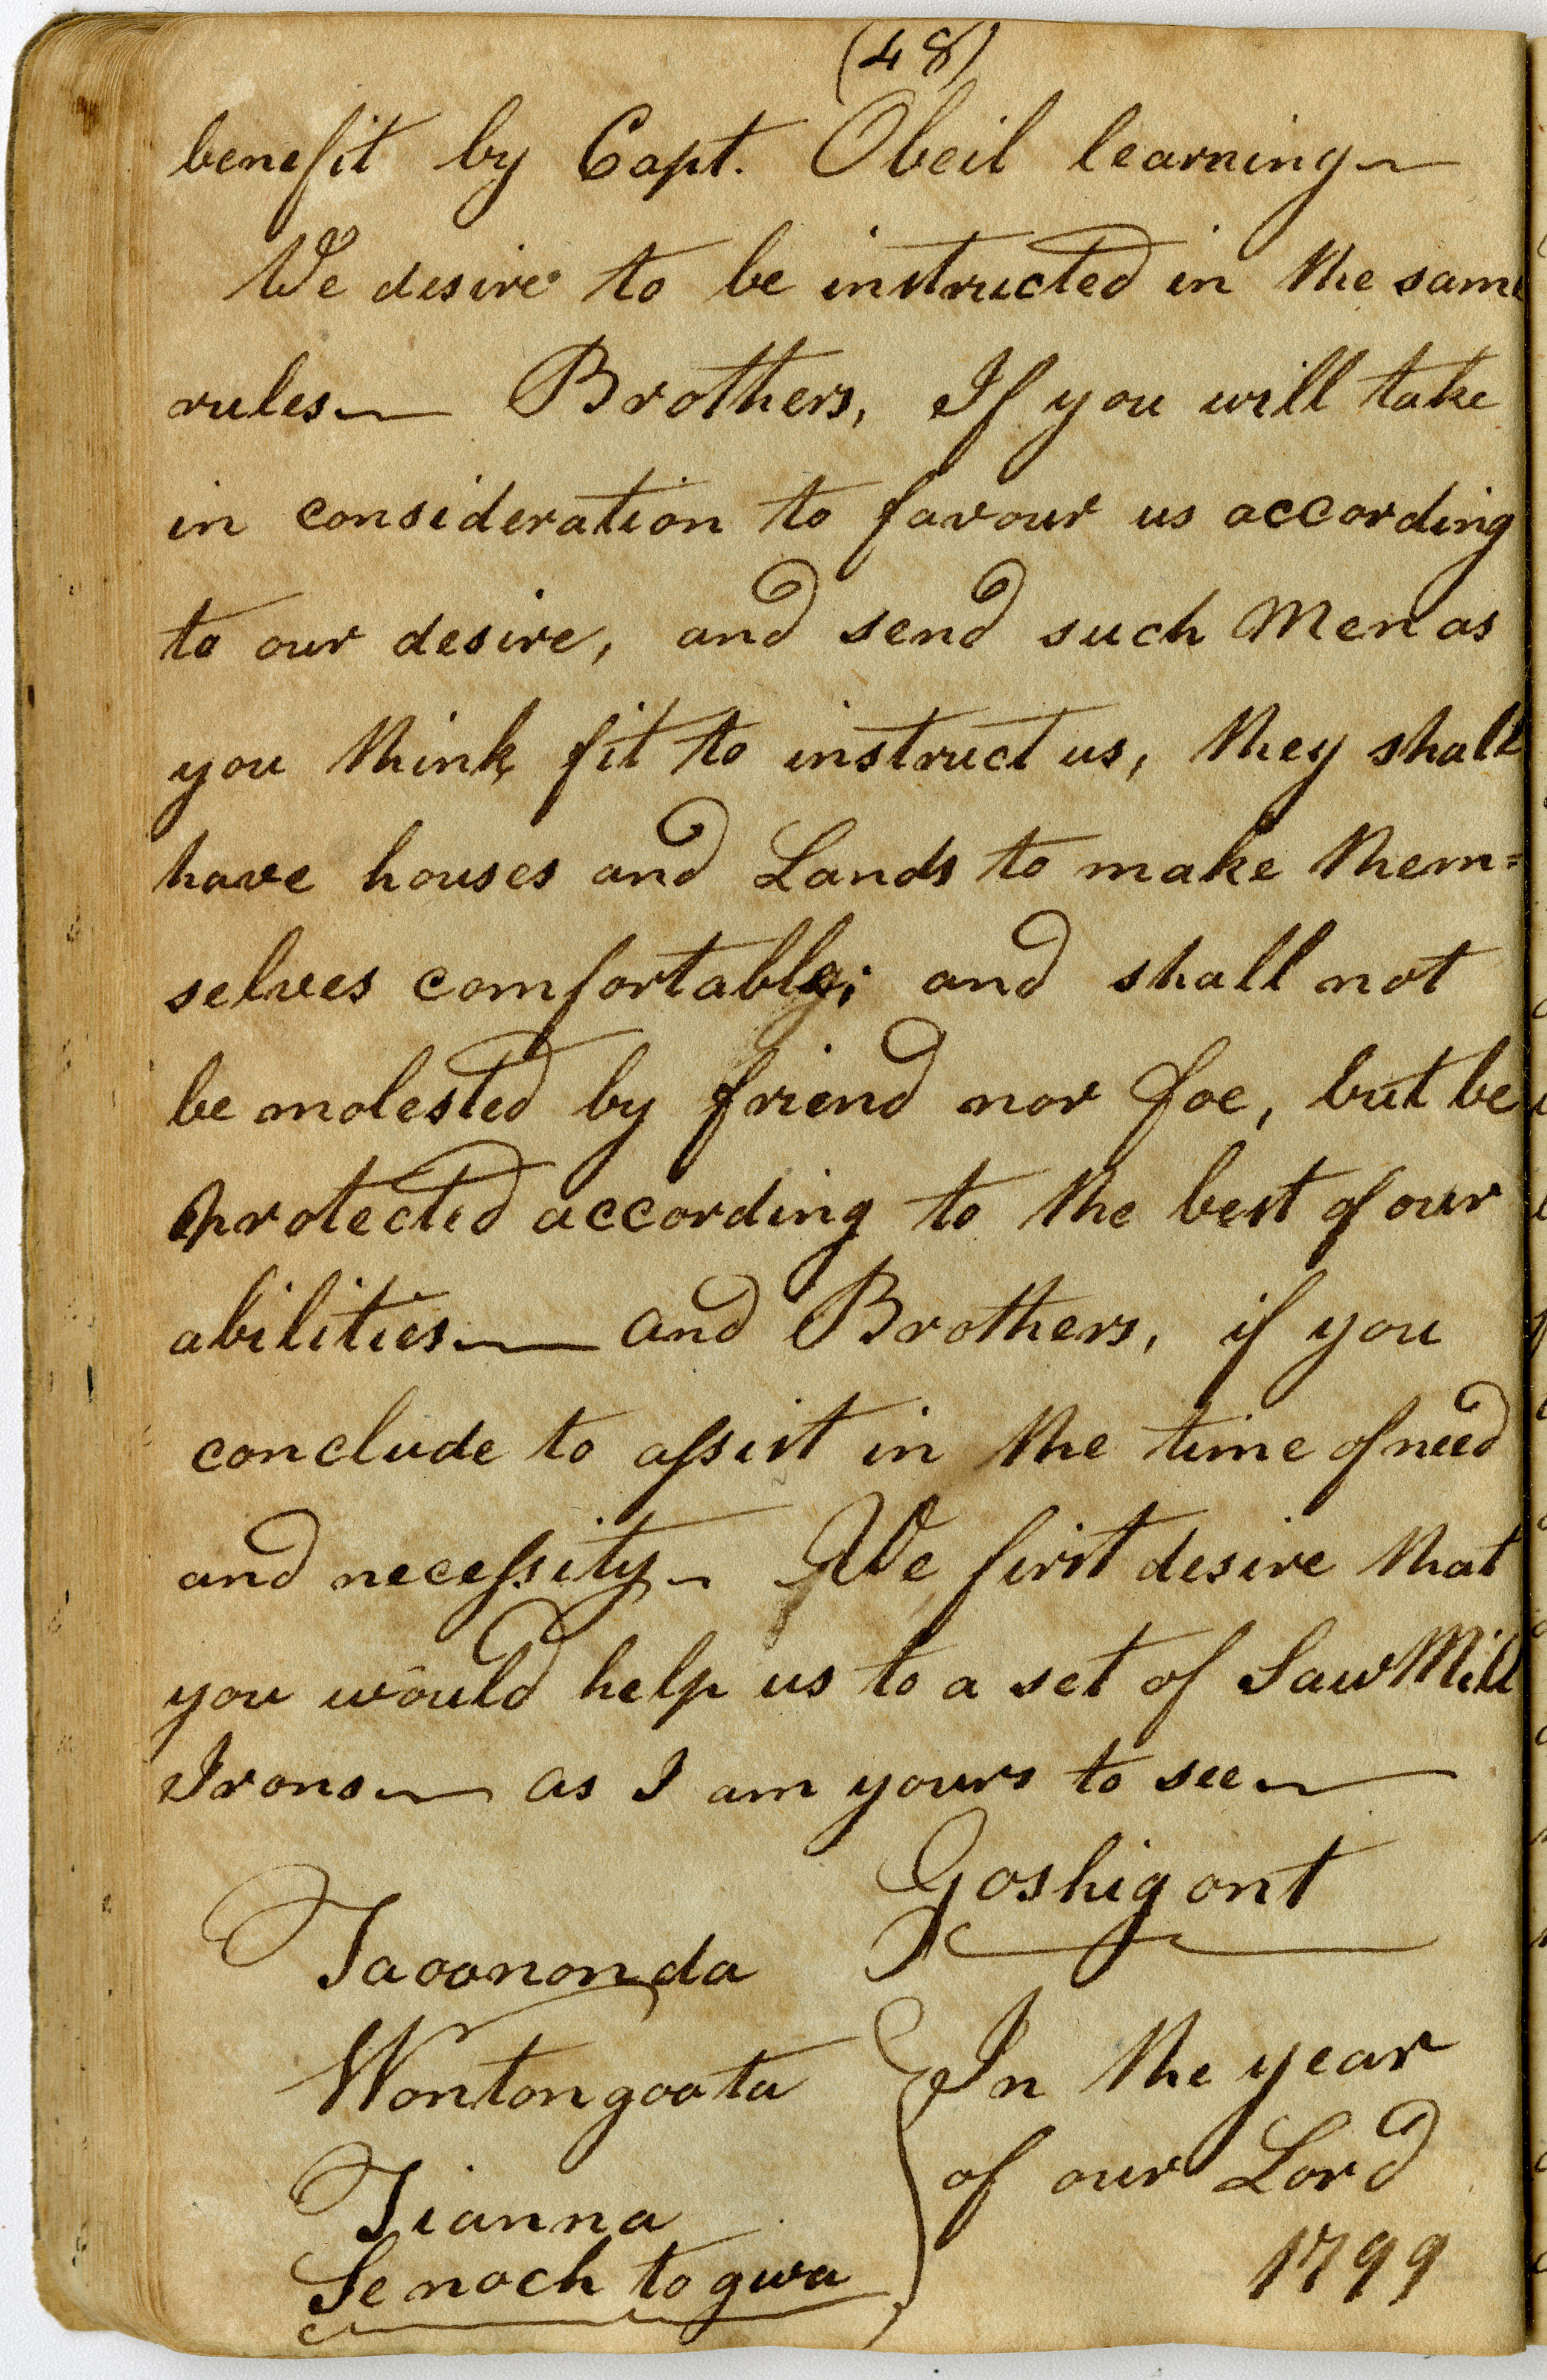 (48)
benefit by Capt. Obeil learning—
We desire to be instructed in the same
rules— Brothers, If you will take
in consideration to favour us according
to our desire, and send such Men as
you think fit to instruct us, they shall
have houses and Lands to make them=
selves comfortable; and shall not
be molested by friend nor foe, but be
protected according to the best of our
abilities— and Brothers, if you
conclude to assist in the time of need
and necessity— We first desire that
you would help us to a set of Saw Mill
Irons— as I am yours to see—
Goshigont
Taoonon da
Wontongoota
Tianna
Se noch to gwa
In the year
of our Lord
1799